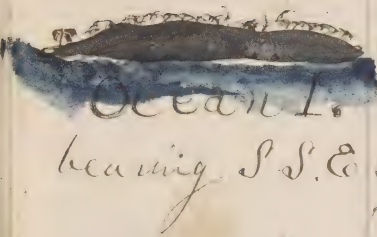 Ocean I.
bearing S S. E